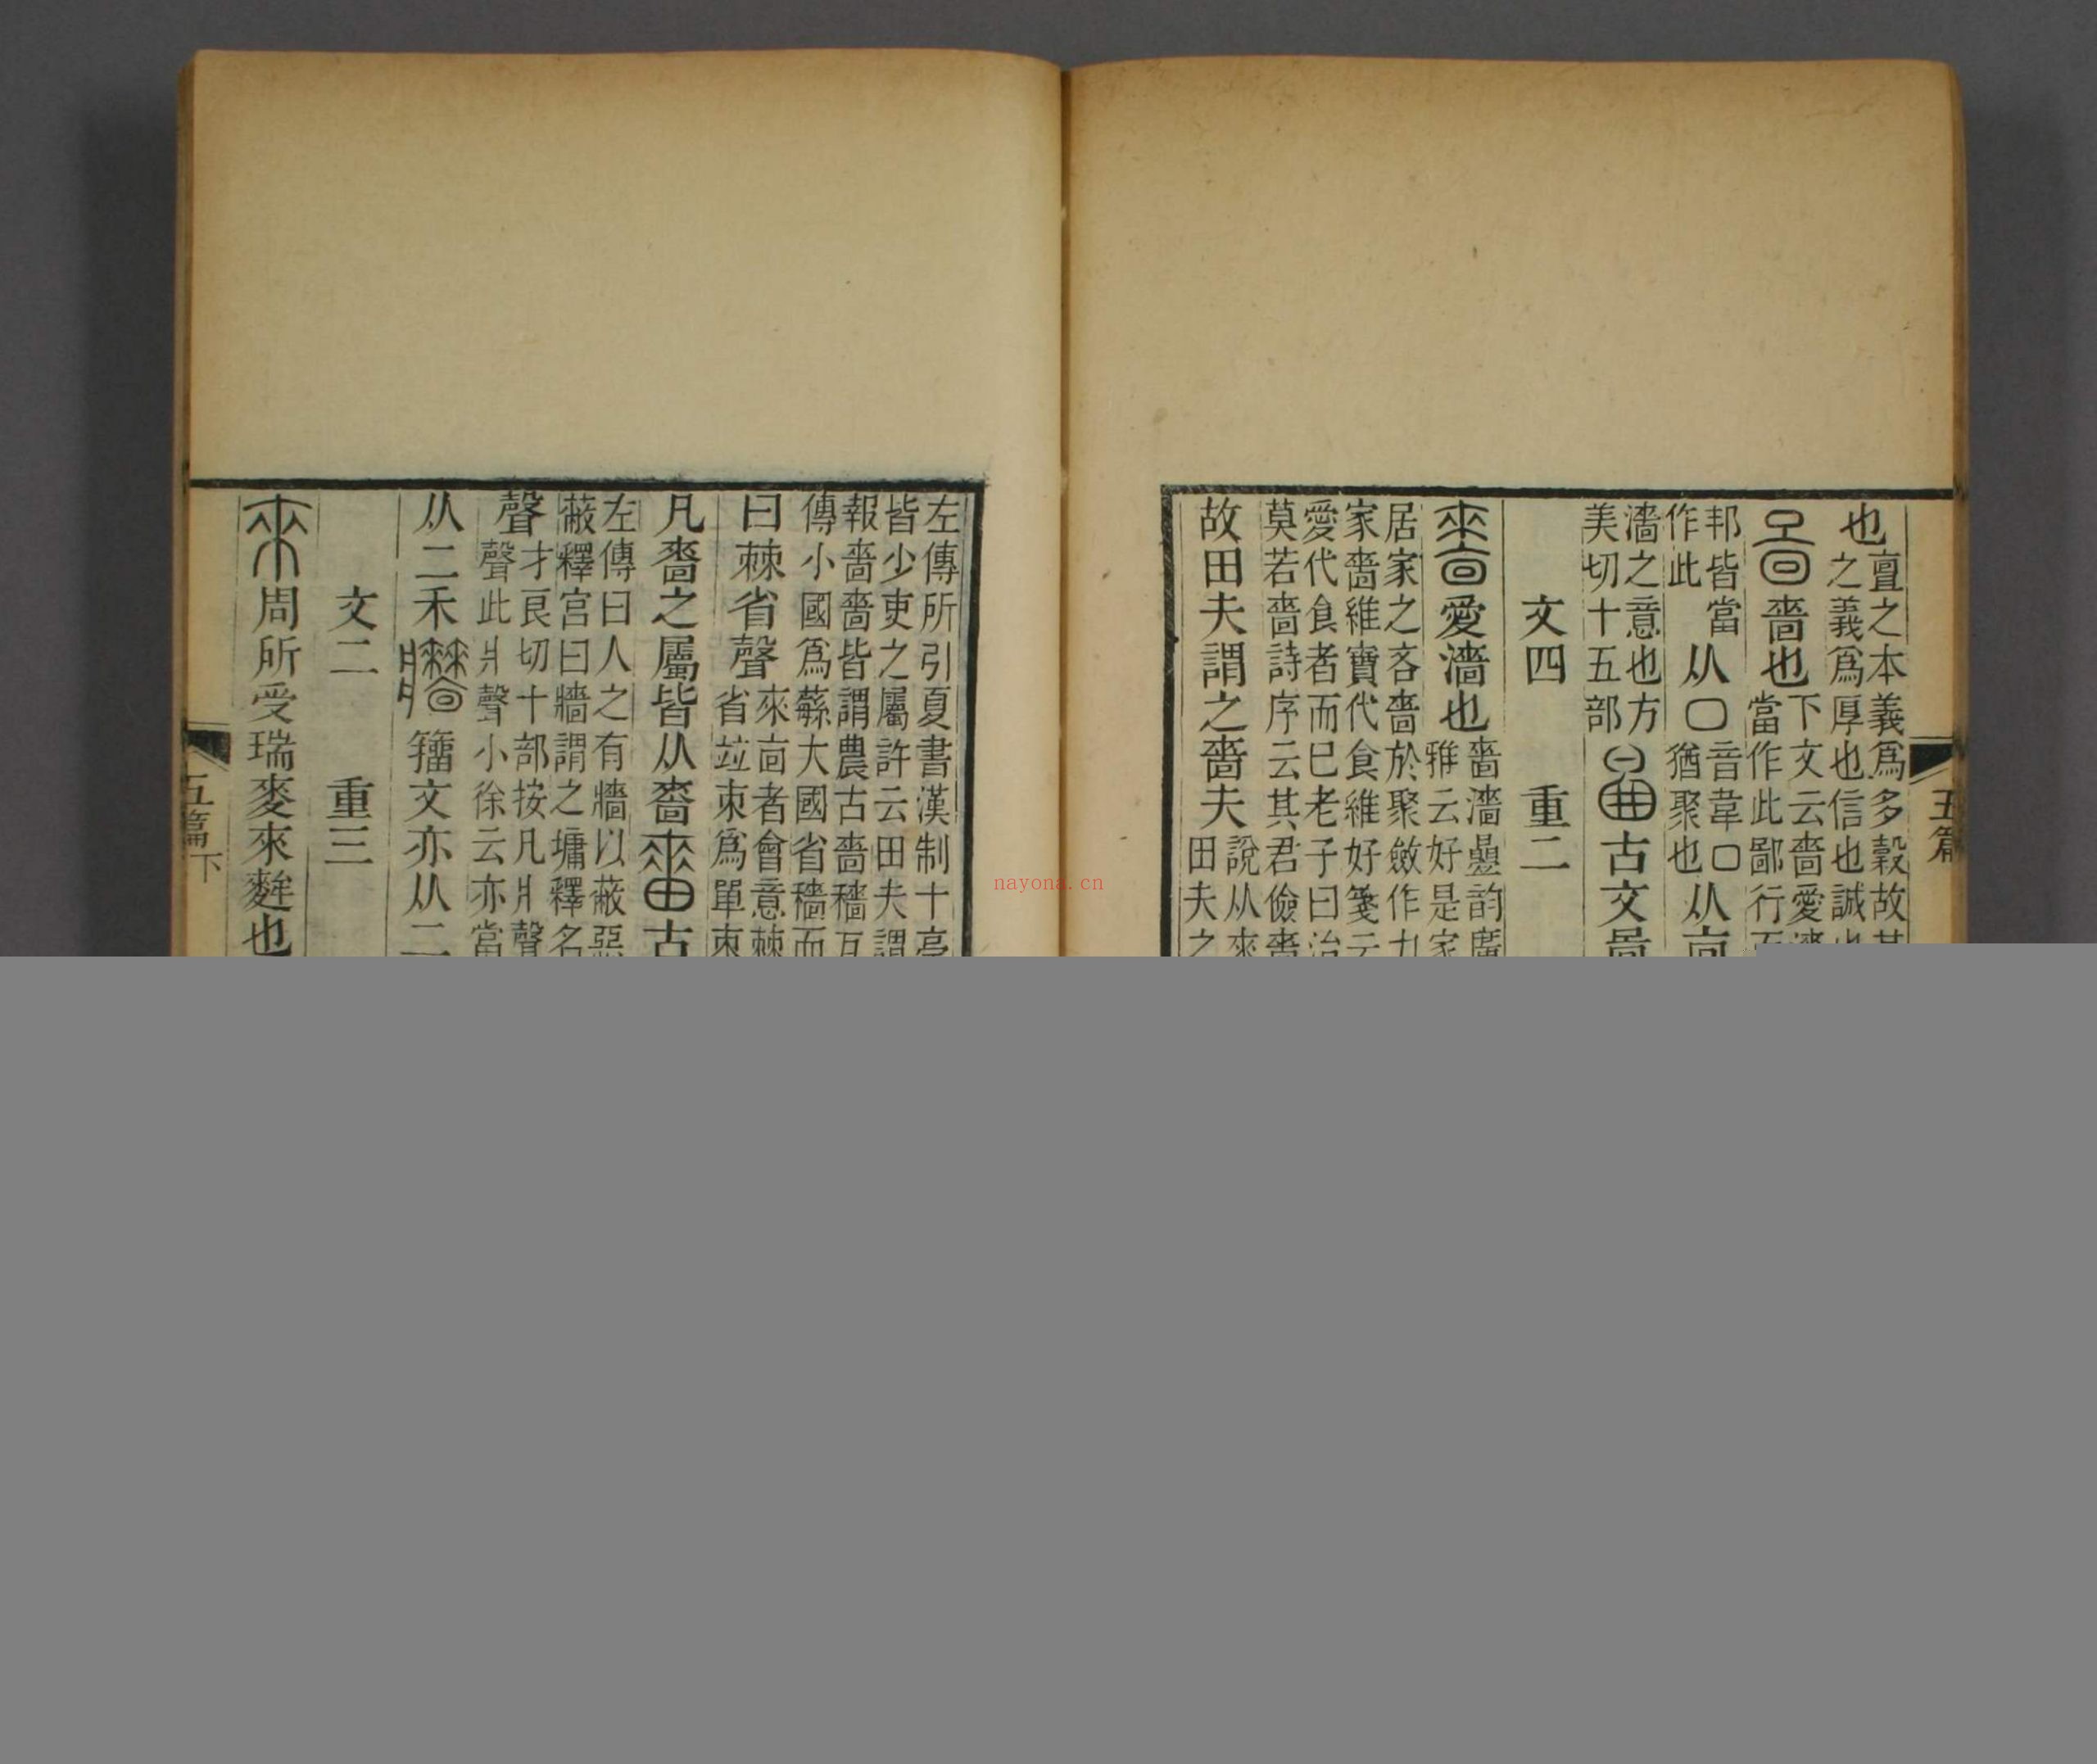 也亶之本義爲多穀故其
之義爲厚也信也誠也
嗇也下文云嗇愛濇
當作此鄙行而
邦皆當
作此
从囗音韋囗
猶聚也
从㐭
濇之意也方
美切十五部
古文啚
文四 重二
愛濇也嗇濇曡韵廣
雅云好是家
居家之吝嗇於聚斂作力
家嗇維寶代食維好箋云
愛代食者而巳老子曰治
莫若嗇詩序云其君儉嗇
故田夫謂之嗇夫說从來
田夫之
左傳所引夏書漢制十亭
皆少吏之屬許云田夫謂
報嗇嗇皆謂農古嗇穡互
傳小國爲蘇大國省穡而
曰棘省聲來㐭者會意棘
省竝朿爲單朿
凡嗇之屬皆从嗇
古
左傳曰人之有牆以蔽惡
蔽釋宮曰牆謂之墉釋名
聲才良切十部按凡爿聲
聲此爿聲小徐云亦當
从二禾
籒文亦从二
文二 重三
周所受瑞麥來麰也
五篇
五篇下
nayona.cn